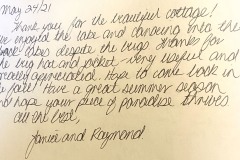 May 24/21
Thank you for the beautiful cottage!
We enjoyed the lake and canoeing into the
lakes despite the bugs. Thanks for
the bug hat and jacket - very useful and
greatly appreciated. Hope to come back in
the fall! Have a great summer season
and hope your piece of paradise thrives
all the best,
Janice and Raymond